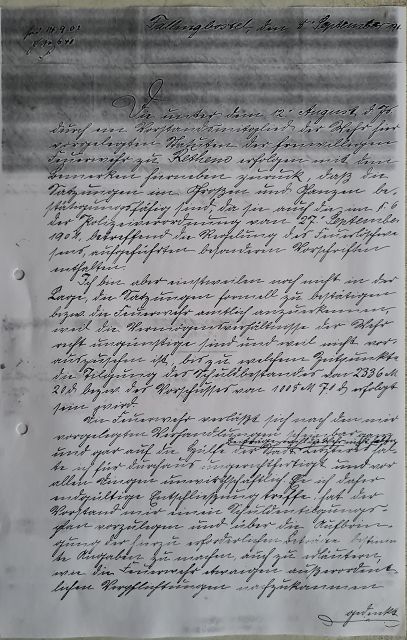 Fallingbostel, den 8ten September
Die unter dem 12. August d. Js.
durch ein Vorstandsmitglied der Wehr hier
vorgelegten Satzungen der freiwilligen
Feuerwehr zu Rethem erfolgen mit dem
Bemerken hierneben zurück, daß die
Satzungen im Großen und Ganzen be-
stätigungsfähig sind, da sie auch die im § 6
der Polizeiverordnung vom 27. September
1904, betreffend die Regelung des Feuerlöschwe-
sens, aufgeführten besonderen Vorschriften
enthalten.
Ich bin aber einstweilen noch nicht in der
Lage, die Satzungen formell zu bestätigen
bezw. die Feuerwehr amtlich anzuerkennen,
weil die Vermögensverhältnisse der Wehr
recht ungünstige sind und weil nicht vor-
auszusehen ist, bis zu welchem Zeitpunkte
die Tilgung des Schuldbestandes von 2336 M
20 d bezw. des Vorschusses von 1005 M 70 d erfolgt
sein wird.
Die Feuerwehr verläßt sich nach den mir
vorgelegten Verhandlungen
und gar auf die Hülfe der Stadt
te ich für durchaus ungerechtfertigt und vor
allen Dingen unwirthschaftlich. Ehe ich daher
endgültige Entschließung treffe, hat der
Vorstand mir einen Schuldentilgungs-
plan vorzulegen und über die Aufbrin-
gung der hierzu erforderlichen Beträge bestimm-
te Angaben zu machen, auch zu erläutern,
wie die Feuerwehr etwaigen außerordent-
lichen Verpflichtungen nachzukommen
gedenkt.